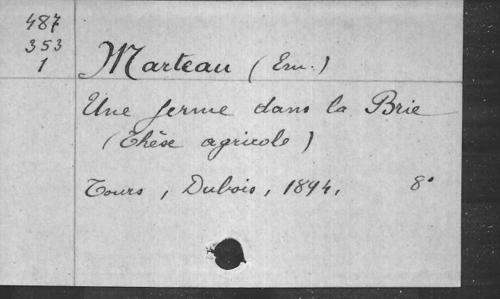 487
353
1
Marteau (Em.)
Une ferme dans la Brie
(Thèse agricole)
Tours, Dubois, 1894, 8°